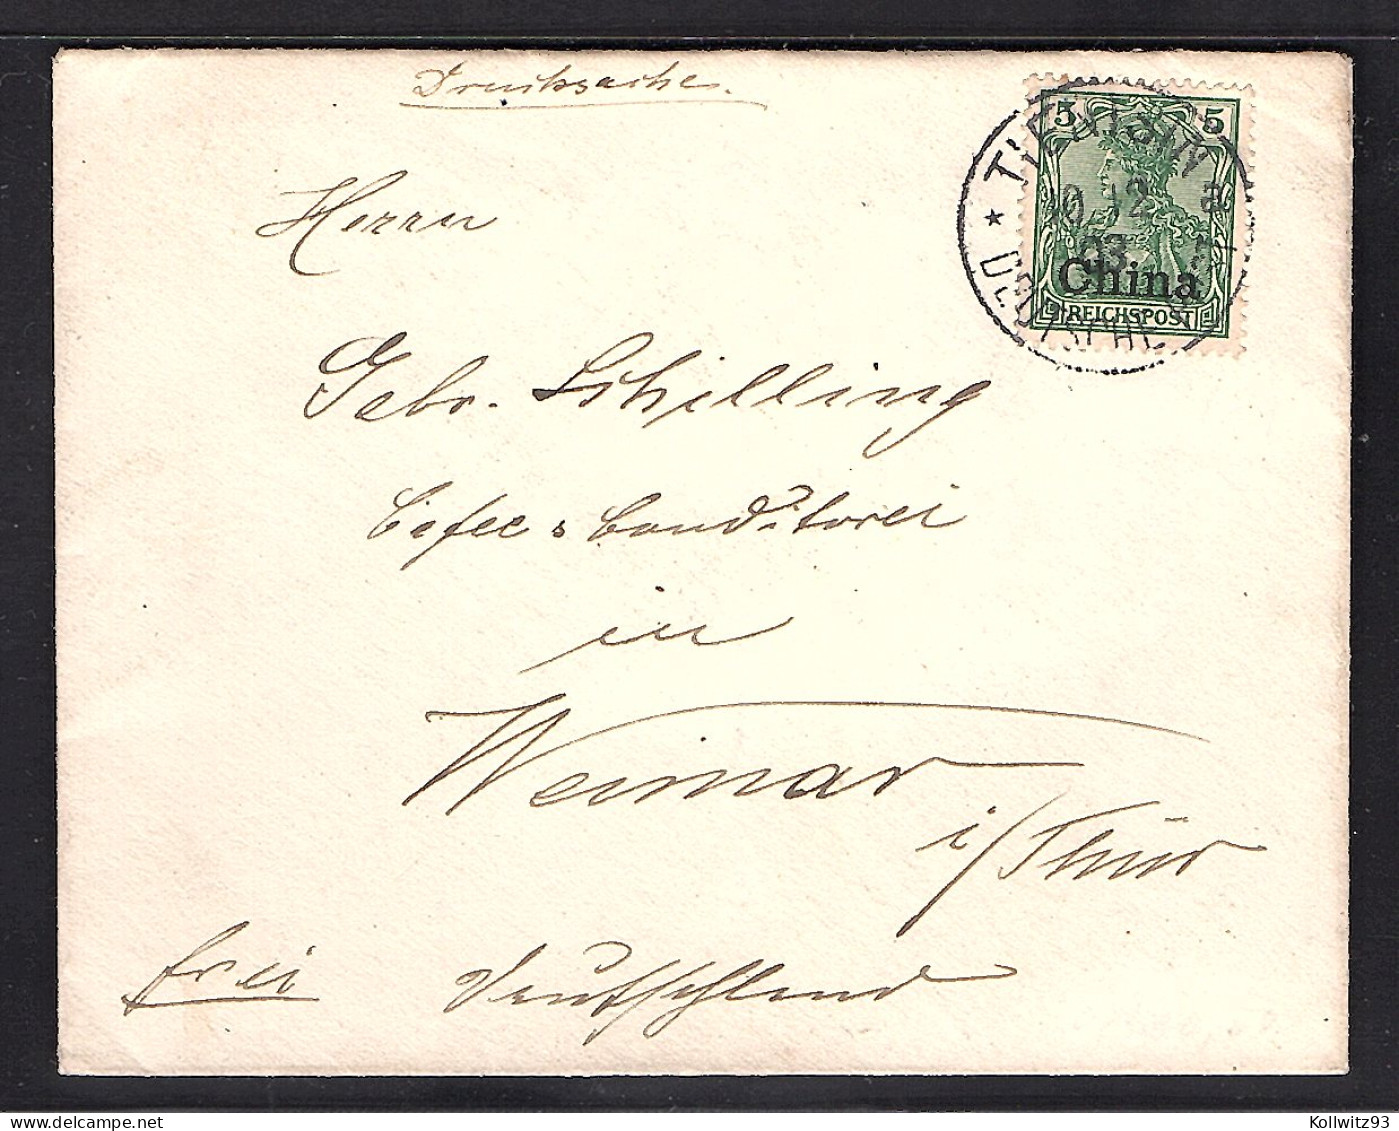 Drucksache.
Herrn
Gebr. Schilling
Cafee & Conditorei
in
Weimar
i/Thür
frei Deutschland
5 5
China
REICHSPOST
TIENTSIN
a
03
DEUTSCHE
delcampe.net
Kollwitz93